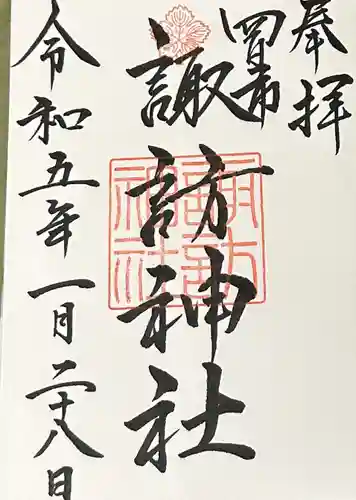 奉拝
四日市
諏訪神社
諏訪神社
令和五年一月二十八日